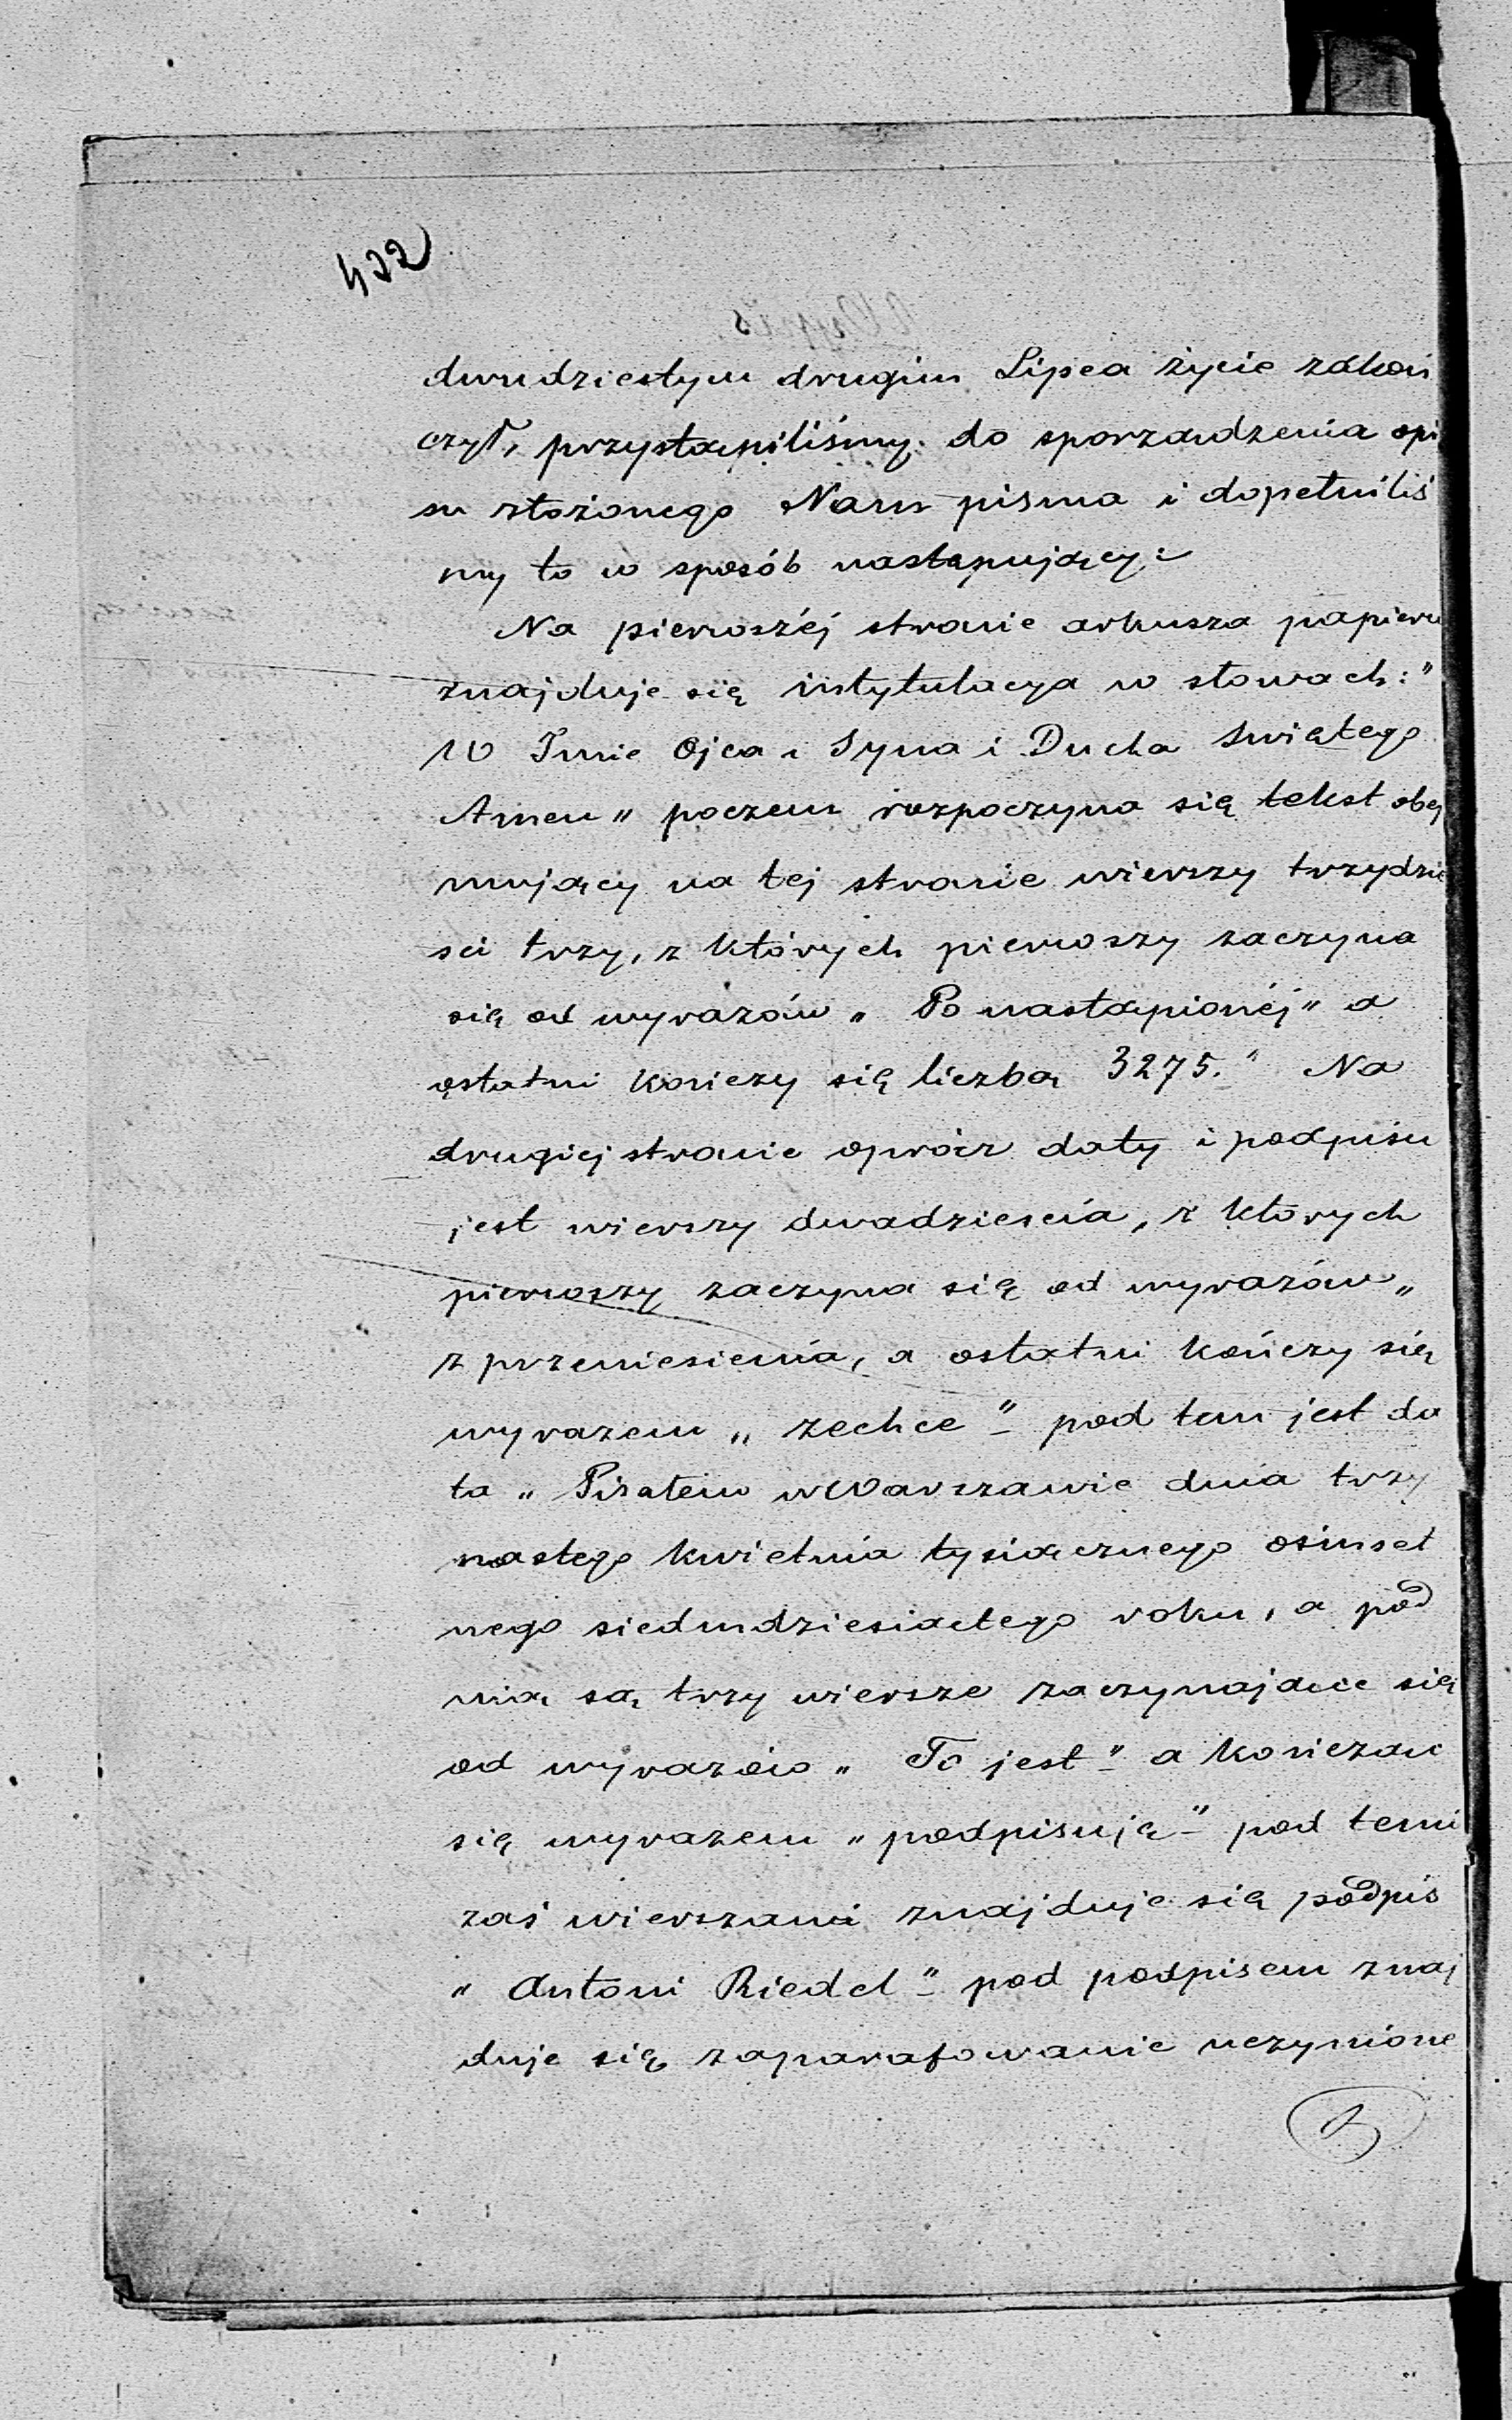 432
dwudziestym drugim Lipca życie zakoń
czył, przystąpiliśmy do sporządzenia opi
su złożonego Nam pisma i dopełniliś
my to w sposób następujący:
Na pierwszéj stronie arkusza papieru
znajduje się instytulacya w słowach: "
W Imie Ojca i Syna i Ducha Świętego
Amen " poczem rozpoczyna się tekst obej
mujący na tej stronie wierszy trzydzie
sci trzy, z których pierwszy zaczyna
się od wyrazów „ Po nastąpionéj " a
ostatni kończy się liczbą 3275." Na
drugiej stronie oprócz daty i podpisu
jest wierszy dwadzieścia, z których
pierwszy zaczyna się od wyrazów „
z przeniesienia, a ostatni kończy się
wyrazem „ zechce " pod tem jest da
ta „ Pisałem w Warszawie dnia trzy
nastego kwietnia tysiącznego ośmset
nego siedmdziesiątego roku, a pod
nią są trzy wiersze zaczynające się
od wyrazów „ To jest " a kończąc
się wyrazem „ podpisuję " pod temi
zaś wierszami znajduje się podpis
„ Antoni Riedel " pod podpisem znaj
duje się zaparafowanie uczynione